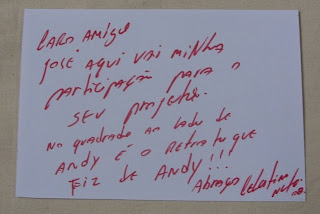 CARO AMIGO
JOSÉ AQUI VAI MINHA
PARTICIPAÇÃO PARA O
SEU PROJETO.
NO QUADRADO AO LADO DE
ANDY É O RETRATO QUE
FIZ DE ANDY!!!
ABRAÇO